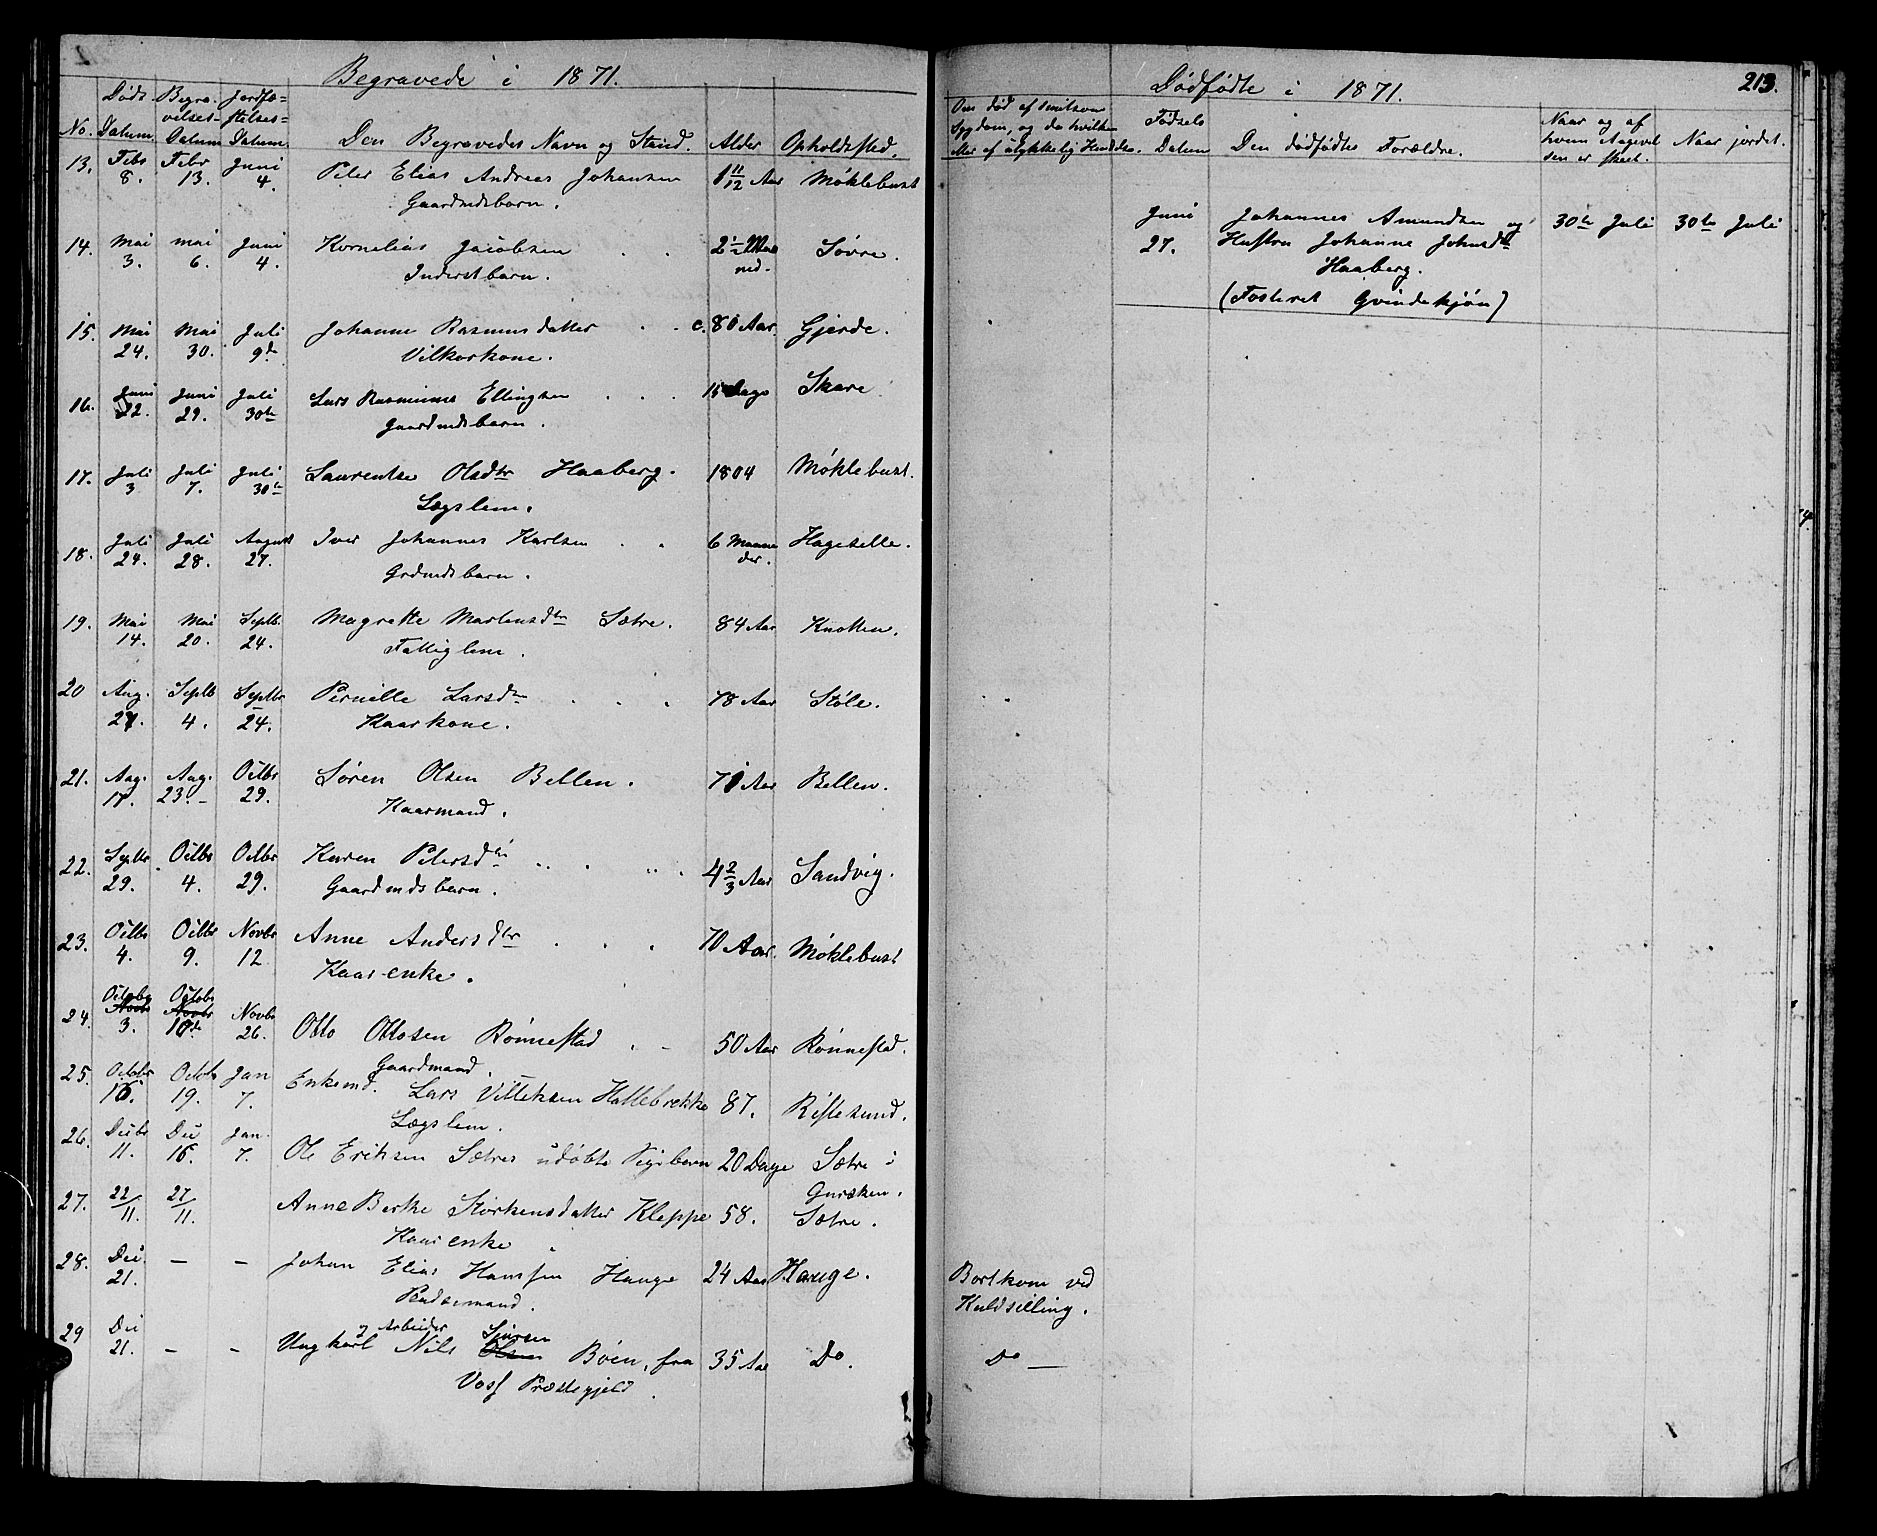 Begravede i 1871.
No. Døds Datum. Begravelses- Datum Jordfæstelses- Datum. Den Begravedes Navn og Stand. Alder Opholdssted.
13. Febr 8. Febr 13. Juni 4. Peter Elias Andreas Johansen 1 11/12 Aar Møklebust
Gaardmdsbarn.
14. Mai 3. Mai 6. Juni 4. Kornelius Jacobsen 2 1/2 Maaned. Søvre.
Inderstbarn.
15. Mai 24. Mai 30. Juli 9de Johanne Rasmusdatter c. 80 Aar. Gjerde.
Vilkorkone.
16. Juni 22. Juni 29. Juli 30te Lars Rasmus Ellingsen 15 Dage Skare
Gaardmdsbarn.
17. Juli 3 Juli 7. Juli 30te Laurentse Olsdtr Haaberg. 1804 Møklebust.
Lægslem.
18. Juli 24. Juli 28. August 27. Iver Johannes Karlsen 6 Maaneder. Hageselle.
Grdmdsbarn.
19. Mai 14. Mai 20. Septb. 24. Magrette Martensdtr Sætre. 84 Aar Knotten.
Fattiglem.
20 Aug. 27. Septb 4. Septbr 24. Pernille Larsdtr 78 Aar Støle.
Kaarkone.
21. Aug. 17. Aug. 23. Octbr 29. Søren Olsen Bellen. 71 Aar Bellen.
Kaarmand.
22. Septbr 29. Octbr 4. Octbr 29. Karen Petersdtr 4 2/3 Aar Sandvig.
Gaardmdsbarn.
23. Octbr 4. Octbr 9. Novbr 12 Anne Andersdtr 70 Aar. Møklebust
Kaar-enke.
24. Octobr Novbr 3. Octobr Novbr 10de Novbr 26. Otto Ottosen Rønnestad 50 Aar Rønnestad.
Gaardmand.
25. Octobr 16. Octob 19. Jan 7. Enkemd. Lars Villeksen Hallebrekke 87. Riste sund.
Lægslem.
26. Decbr 11. Dec 16. Jan. 7. Ole Eriksen Sætres udøbte Pigebarn 20 Dage Sætre i
Gursken.
27. 22/11. 27/11. Anne Berthe Størkensdatter Kleppe 58. Sætre.
Kaarenke
28. Dec. 21. — — Johan Elias Hansen Hauge 24 Aar Hauge.
Pendsmand.
29 Dec 21. — — Ungkarl og Arbeider Nils Olsen Sjursen Bøen, fra 35 Aar Do.
Voss Præstegjeld.
213.
Dødfødte i 1871.
Om død af smitsom Sygdom, og da hvilken eller af ulykkelig Hændelse. Fødsels Datum Den dødfødtes Forældre. Naar og af hvem Angivelsen er skeet. Naar jordet.
Juni 27. Johannes Amundsen og 30te Juli 30te Juli
Hustru Johanne Johnsdtr
Haaberg.
(Fosteret Qvindekjøn)
Bortkom ved
Kuldseiling.
Do —